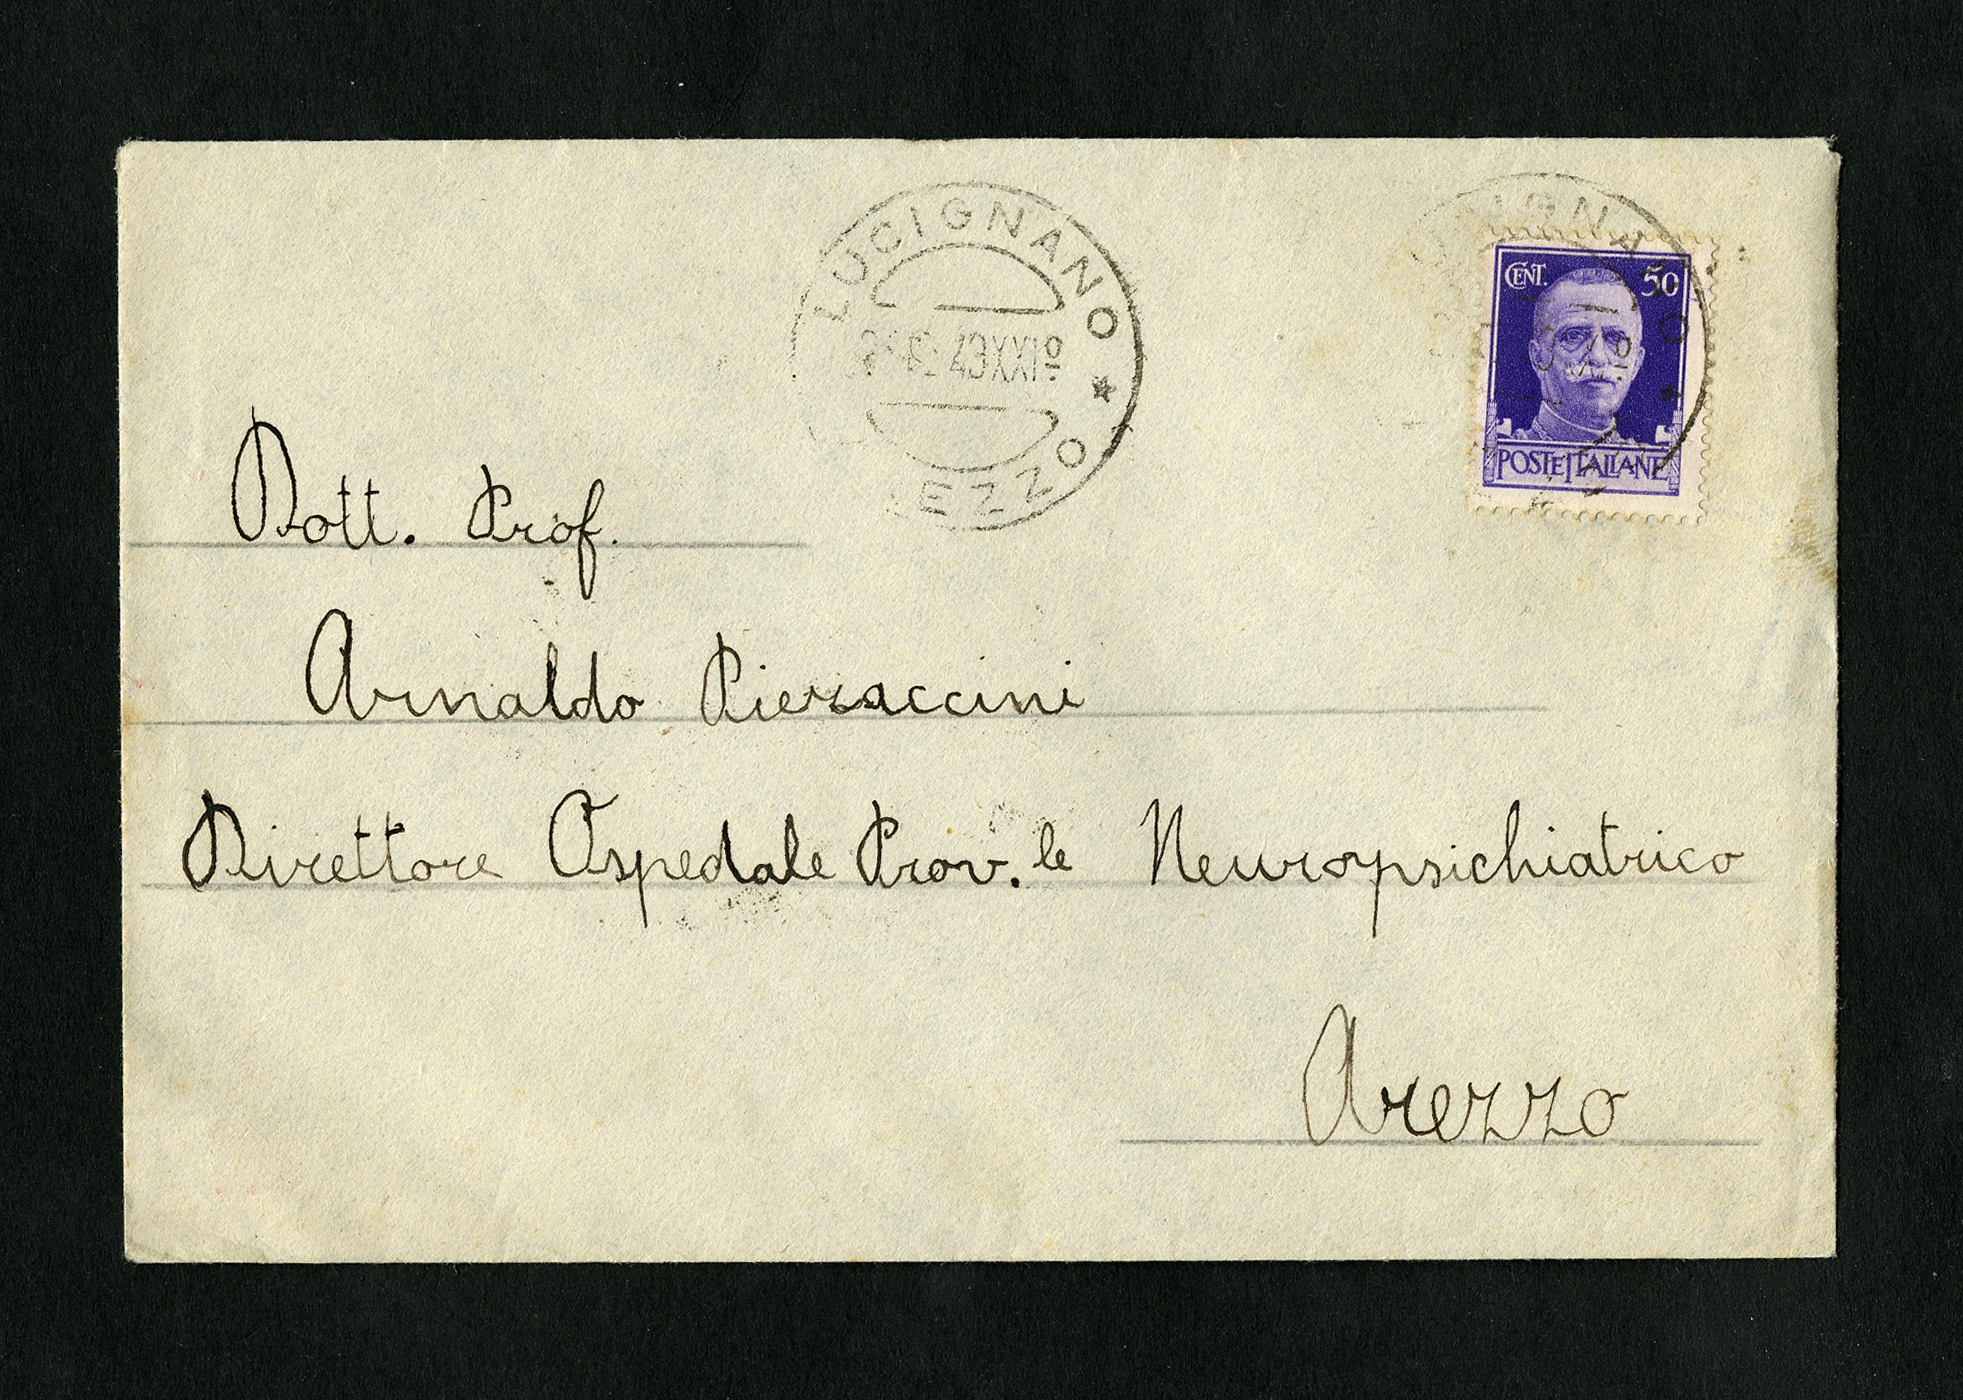 LUCIGNANO
43 XXIº
* AREZZO
CENT. 50
POSTE ITALIANE
Dott. Prof.
Arnaldo Pieraccini
Direttore Ospedale Prov.le Neuropsichiatrico
Arezzo